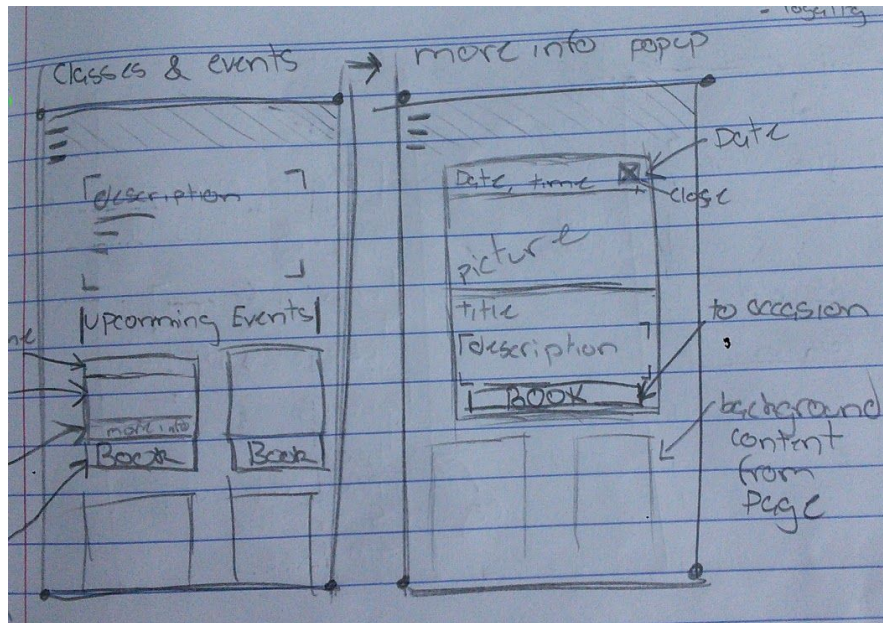 - loyalty
classes & events
more info popup
description
Upcomming Events
more info
Book
Book
Date, time
picture
title
description
BOOK
Date
close
to occasion
background
content
from
Page